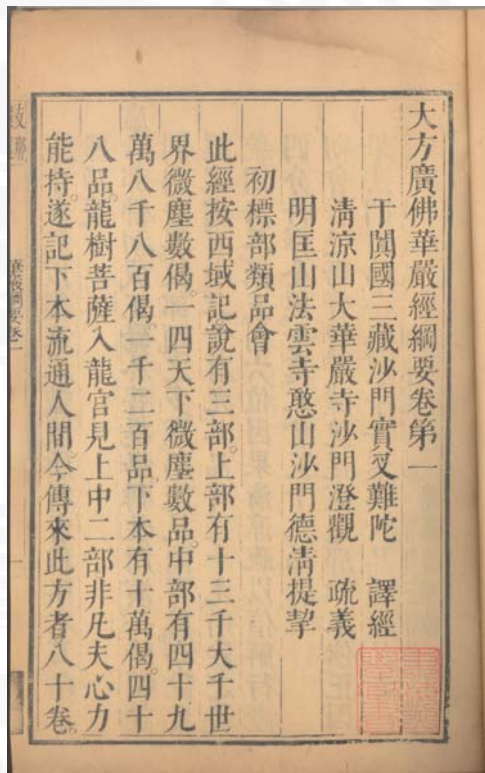 大方廣佛華嚴經綱要卷第一
于闐國三藏沙門實叉難陀　譯經
清涼山大華嚴寺沙門澄觀　疏義
明匡山法雲寺憨山沙門德清提挈
初標部類品會
此經按西域記說有三部。上部有十三千大千世
界微塵數偈。一四天下微塵數品中部有四十九
萬八千八百偈一千二百品下本有十萬偈。四十
八品。龍樹菩薩入龍宮見上中二部非凡夫心力
能持。遂記下本流通人間。今傳來此方者八十卷。